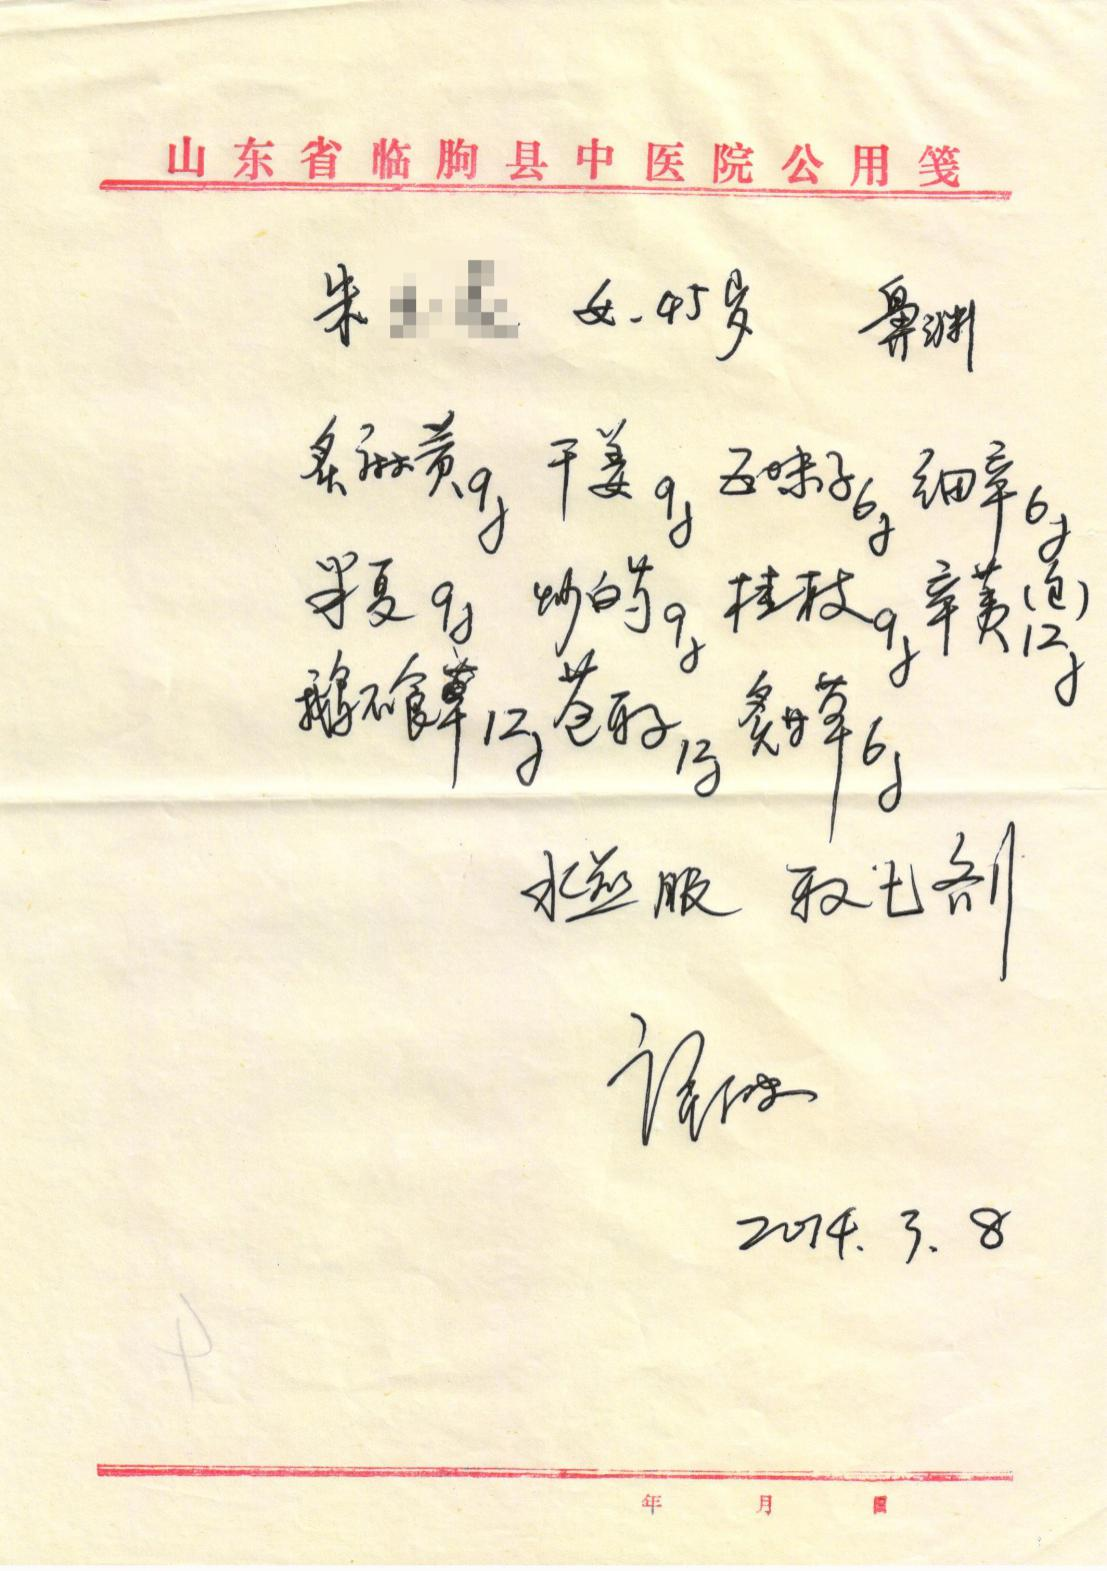 山东省临朐县中医院公用笺
朱 女.45岁 鼻渊
炙麻黄9g 干姜9g 五味子6g 细辛6g
半夏9g 炒白芍9g 桂枝9g 辛荑(包)12g
鹅不食草12g 苍耳子12g 炙甘草6g
水煎服 取七剂
2014.3.8
年 月 日